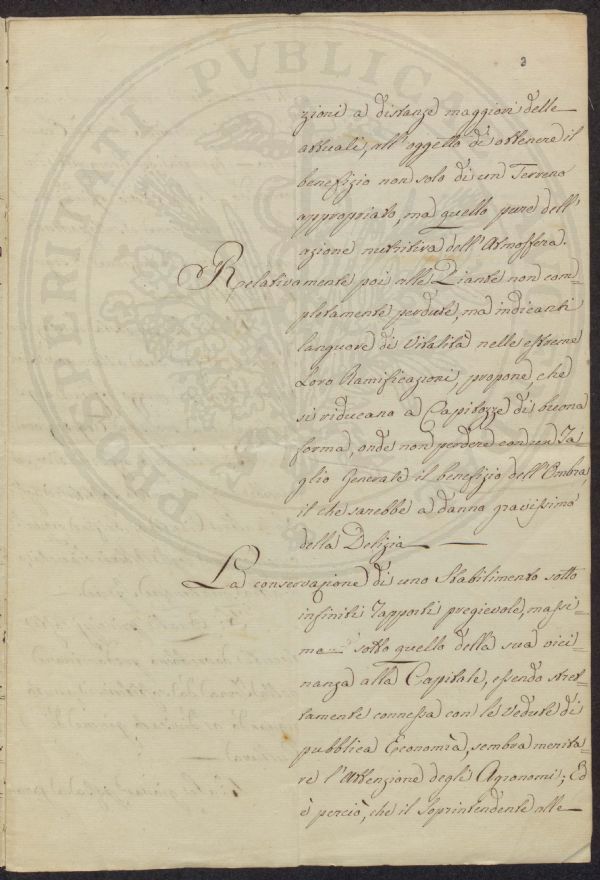 PROSPERITATI PVBLICAE
3
zioni a distanze maggiori delle
attuali, all'oggetto di ottenere il
benefizio non solo di un Terreno
appropriato, ma quello pure dell'
azione nutritiva dell'Atmosfera.
Relativamente poi alle Piante non com=
pletamente perdute, ma indicanti
languore di Vitalità nelle estreme
Loro Ramificazioni, propone, che
si riducano a Capitozze di buona
forma, onde non perdere con un Ta=
glio Generale il benefizio dell'Ombra,
il che sarebbe a danno gravissimo
della Delizia
La conservazione di uno Stabilimento sotto
infiniti rapporti pregievole, massi=
ma sotto quello della sua vici=
nanza alla Capitale, essendo stret=
tamente connessa con le vedute di
pubblica Economia, sembra merita=
re l'Attenzione degli Agronomi; Ed
è perciò, che il Soprintendente alle